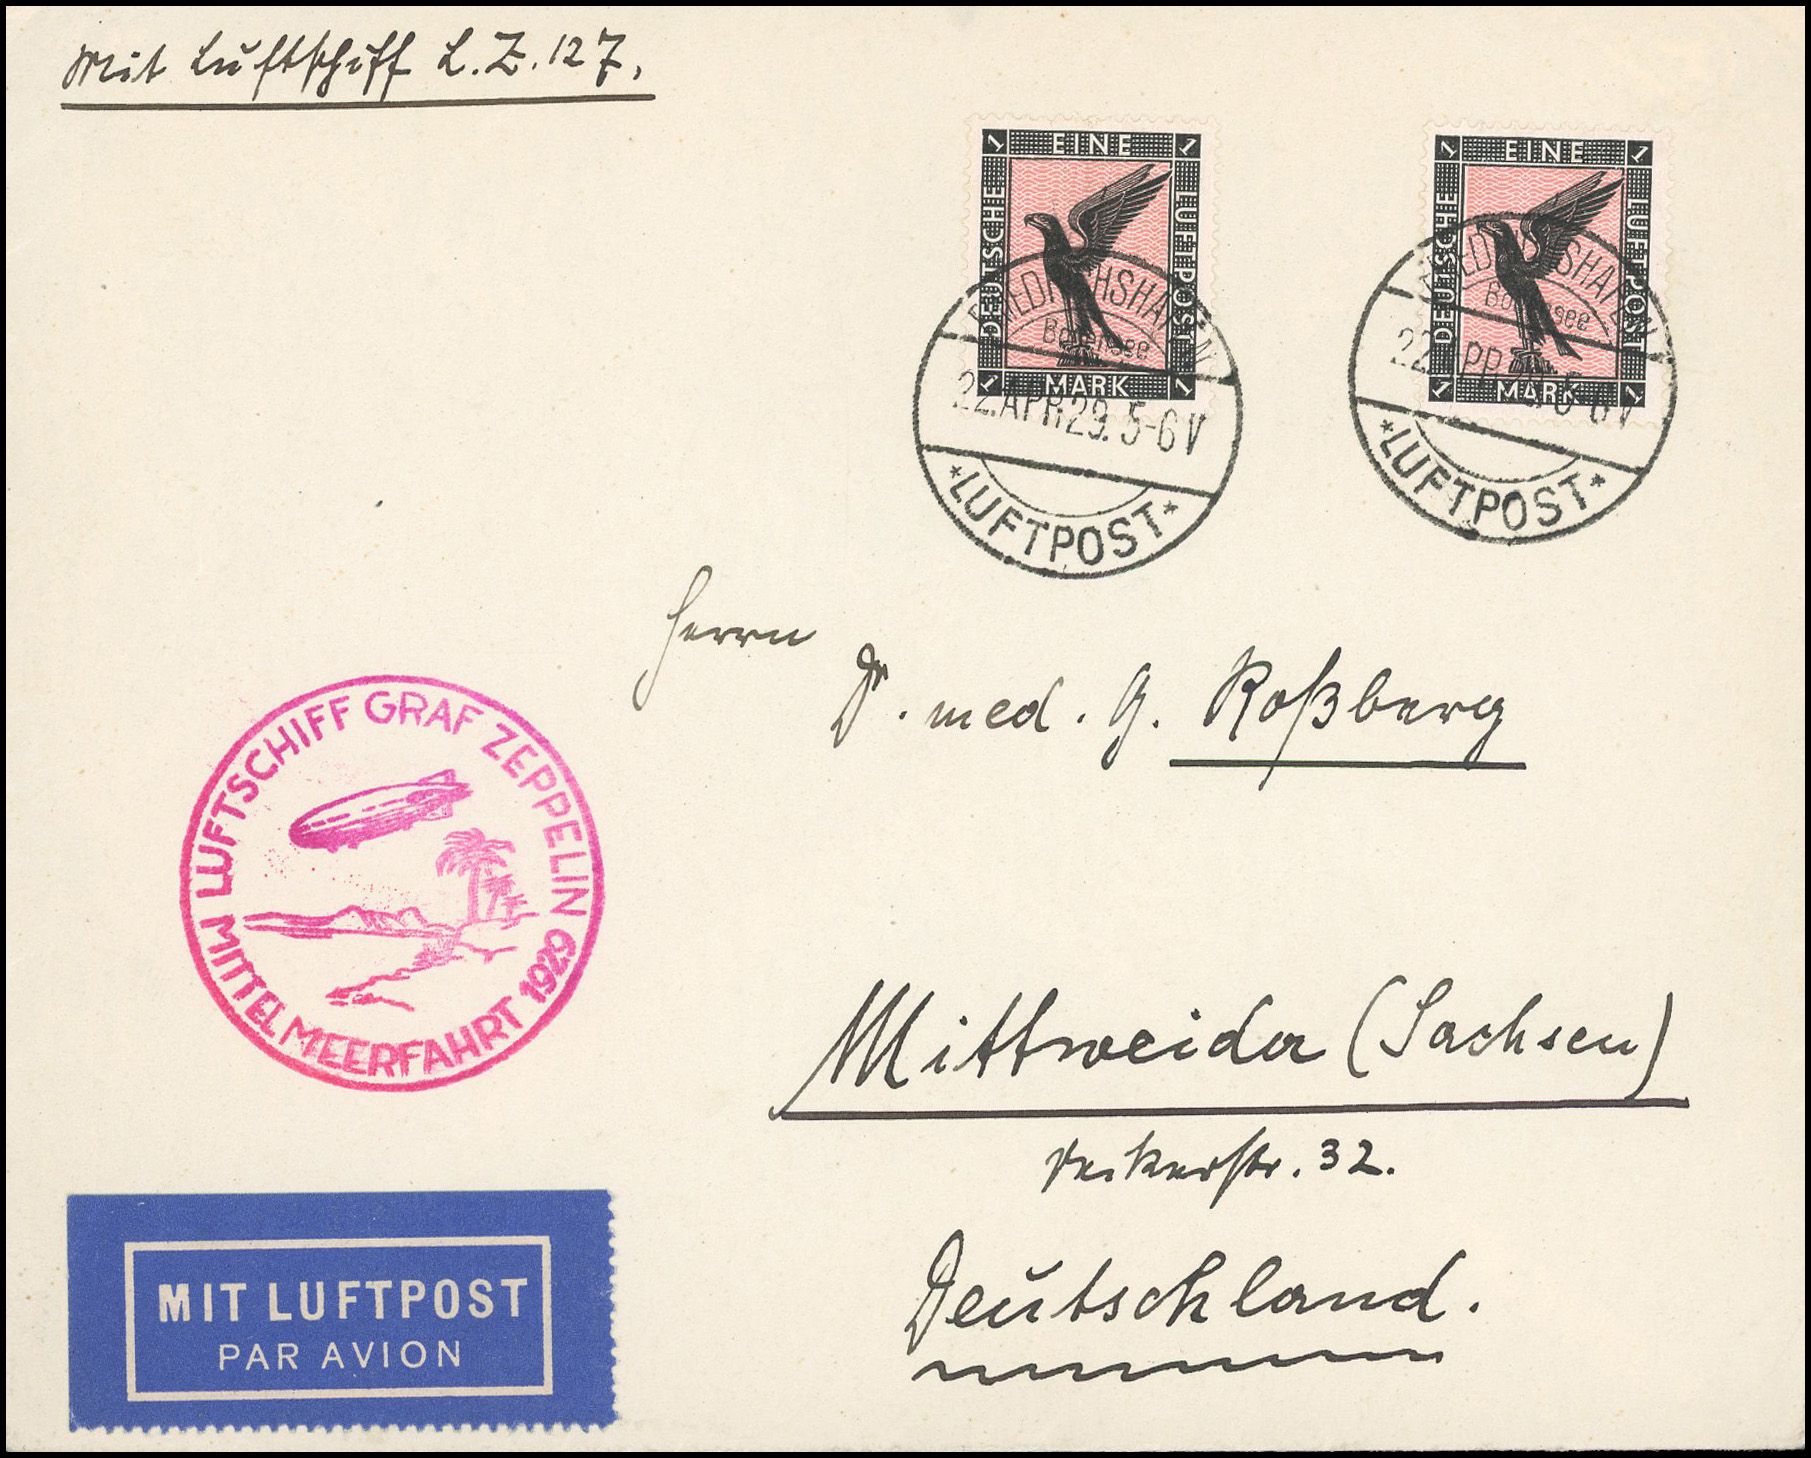 Mit Luftschiff L.Z. 127.
EINE
DEUTSCHE LUFTPOST
1 1
1 MARK 1
EINE
DEUTSCHE LUFTPOST
1 1
1 MARK 1
FRIEDRICHSHAFEN
Bodensee
22.APR.29. 5-6 V
*LUFTPOST*
FRIEDRICHSHAFEN
Bodensee
22.APR.29. 5-6 V
*LUFTPOST*
Herrn
Dr. med. G. Roßberg
LUFTSCHIFF GRAF ZEPPELIN
MITTELMEERFAHRT 1929
Mittweida (Sachsen)
32.
Deutschland.
MIT LUFTPOST
PAR AVION